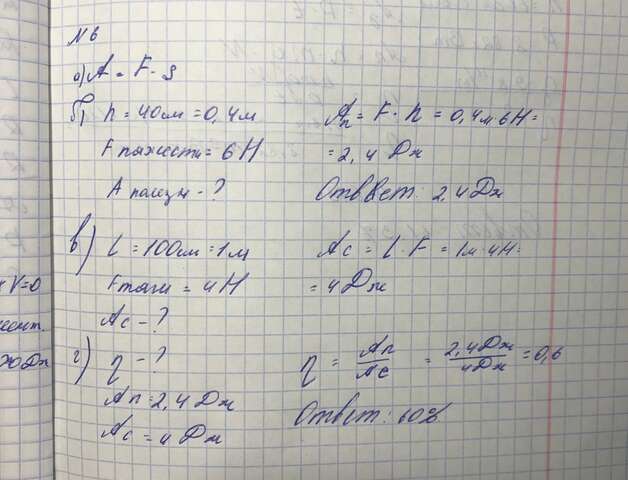 №6
а) A = F · S
б) h = 40см = 0,4м
Fтяжести = 6Н
A полезн - ?
Aп = F · h = 0,4м 6Н =
= 2,4 Дж
Ответ: 2,4 Дж
в) l = 100см = 1м
Fтяги = 4Н
Aс - ?
Aс = l · F = 1м · 4Н =
= 4 Дж
г) η - ?
Aп = 2,4 Дж
Aс = 4 Дж
η = Aп/Aс = 2,4Дж/4Дж = 0,6
Ответ: 60%
V=0